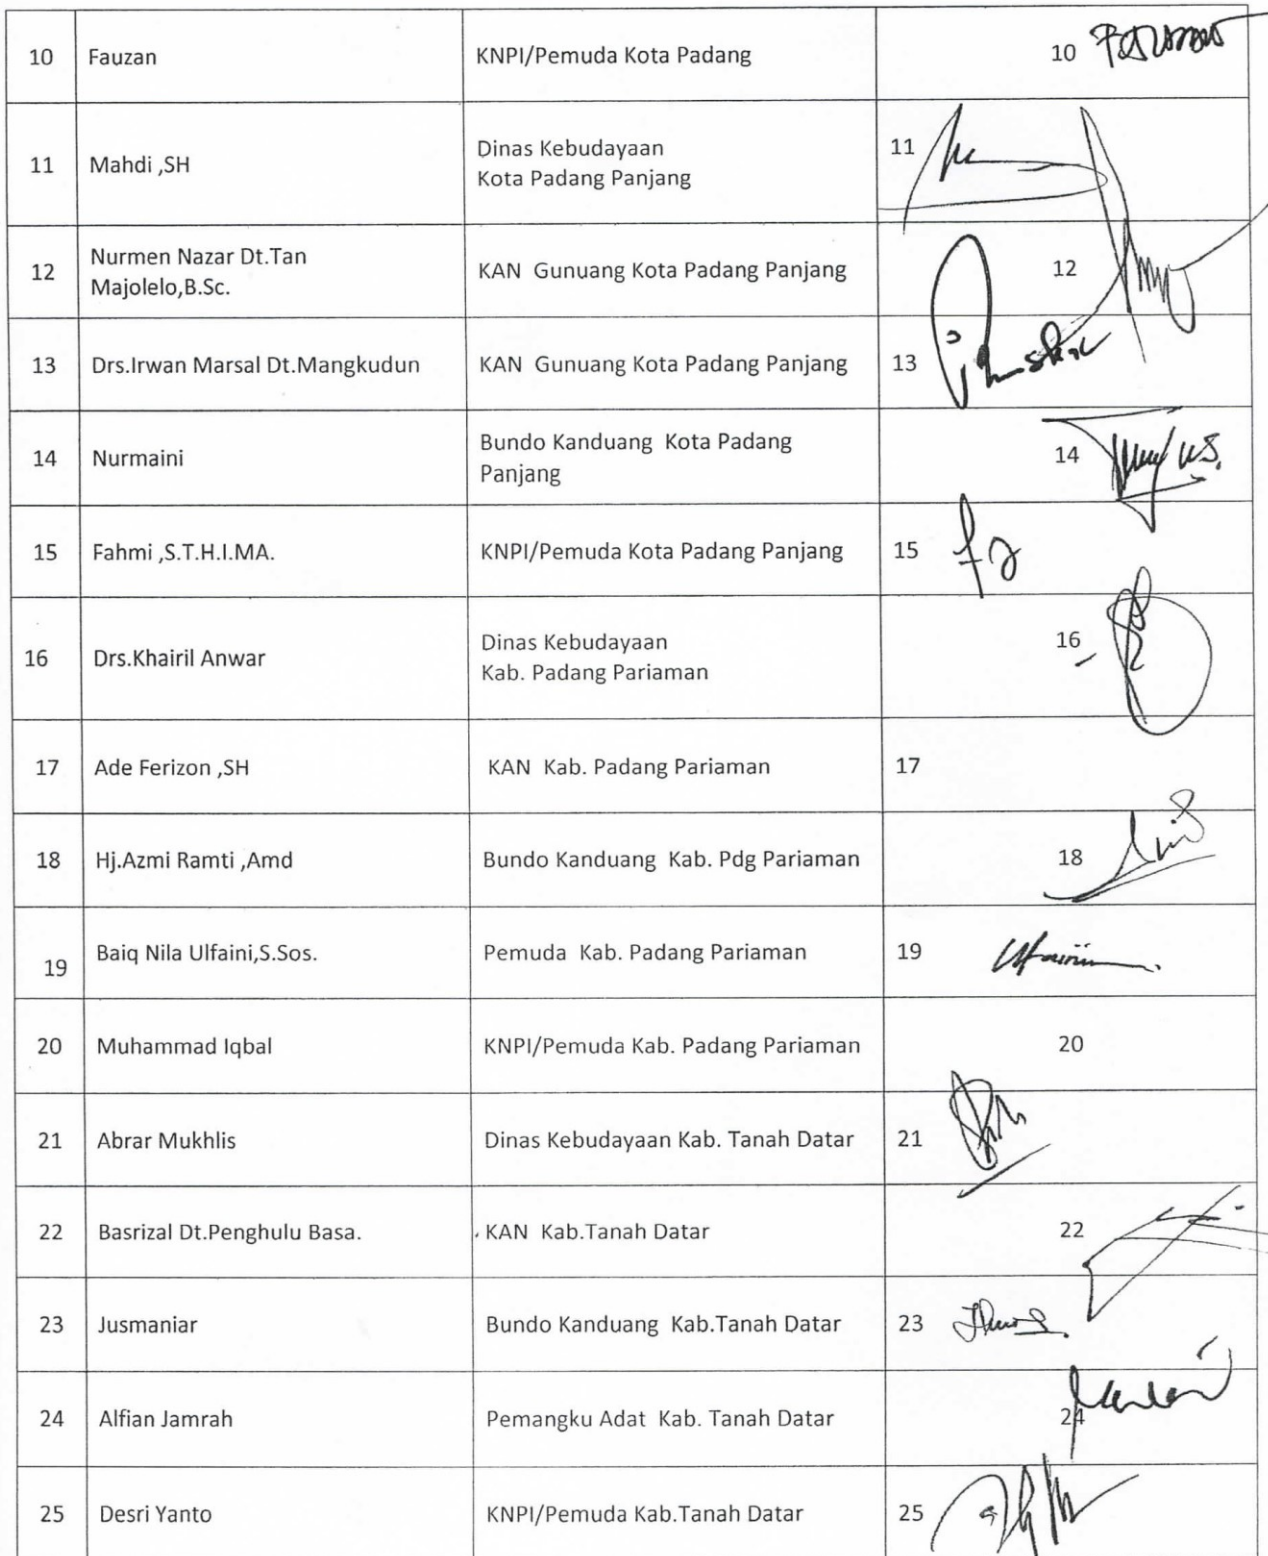 10 Fauzan KNPI/Pemuda Kota Padang 10
11 Mahdi ,SH Dinas Kebudayaan 11
Kota Padang Panjang
12 Nurmen Nazar Dt.Tan KAN Gunuang Kota Padang Panjang 12
Majolelo,B.Sc.
13 Drs.Irwan Marsal Dt.Mangkudun KAN Gunuang Kota Padang Panjang 13
14 Nurmaini Bundo Kanduang Kota Padang 14
Panjang
15 Fahmi ,S.T.H.I.MA. KNPI/Pemuda Kota Padang Panjang 15
16 Drs.Khairil Anwar Dinas Kebudayaan 16
Kab. Padang Pariaman
17 Ade Ferizon ,SH KAN Kab. Padang Pariaman 17
18 Hj.Azmi Ramti ,Amd Bundo Kanduang Kab. Pdg Pariaman 18
19 Baiq Nila Ulfaini,S.Sos. Pemuda Kab. Padang Pariaman 19
20 Muhammad Iqbal KNPI/Pemuda Kab. Padang Pariaman 20
21 Abrar Mukhlis Dinas Kebudayaan Kab. Tanah Datar 21
22 Basrizal Dt.Penghulu Basa. KAN Kab.Tanah Datar 22
23 Jusmaniar Bundo Kanduang Kab.Tanah Datar 23
24 Alfian Jamrah Pemangku Adat Kab. Tanah Datar 24
25 Desri Yanto KNPI/Pemuda Kab.Tanah Datar 25